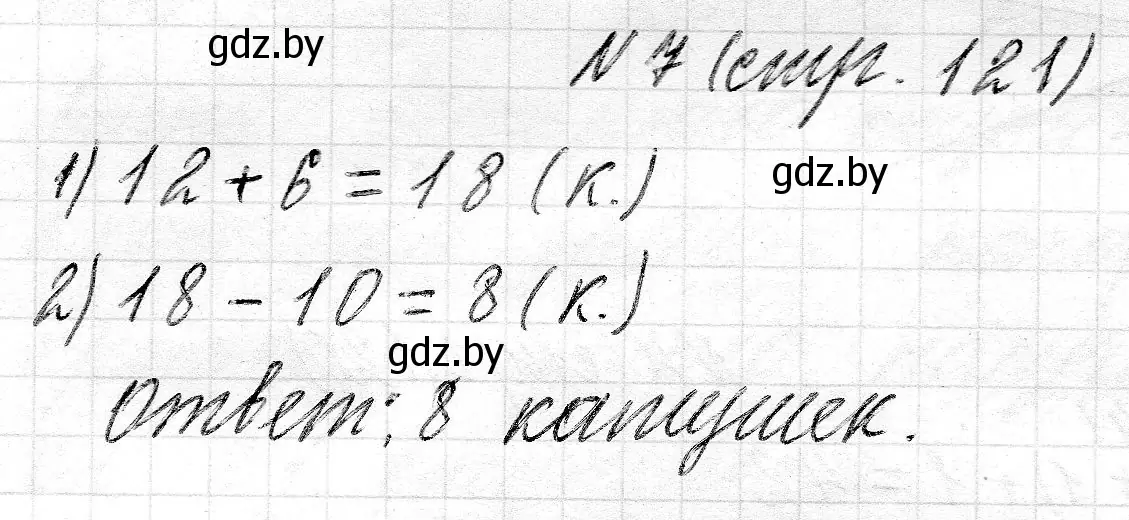 gdz.by
N 7 (стр. 121)
1) 12 + 6 = 18 (к.)
gdz.by
2) 18 - 10 = 8 (к.)
gdz.by
Ответ: 8 катушек.